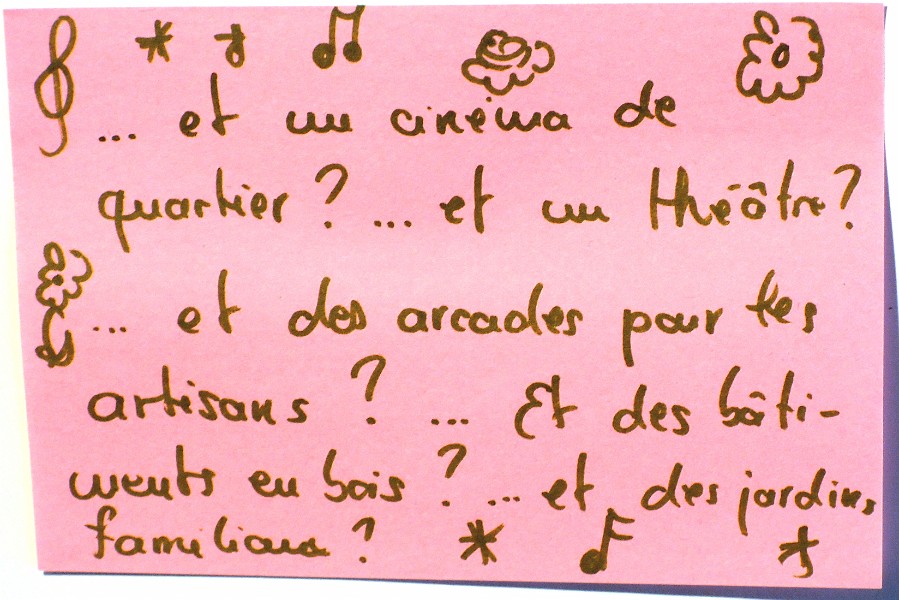 ... et un cinéma de
quartier ? ... et un théâtre ?
... et des arcades pour les
artisans ? ... Et des bâti-
ments en bois ? ... et des jardins
familiaux ?